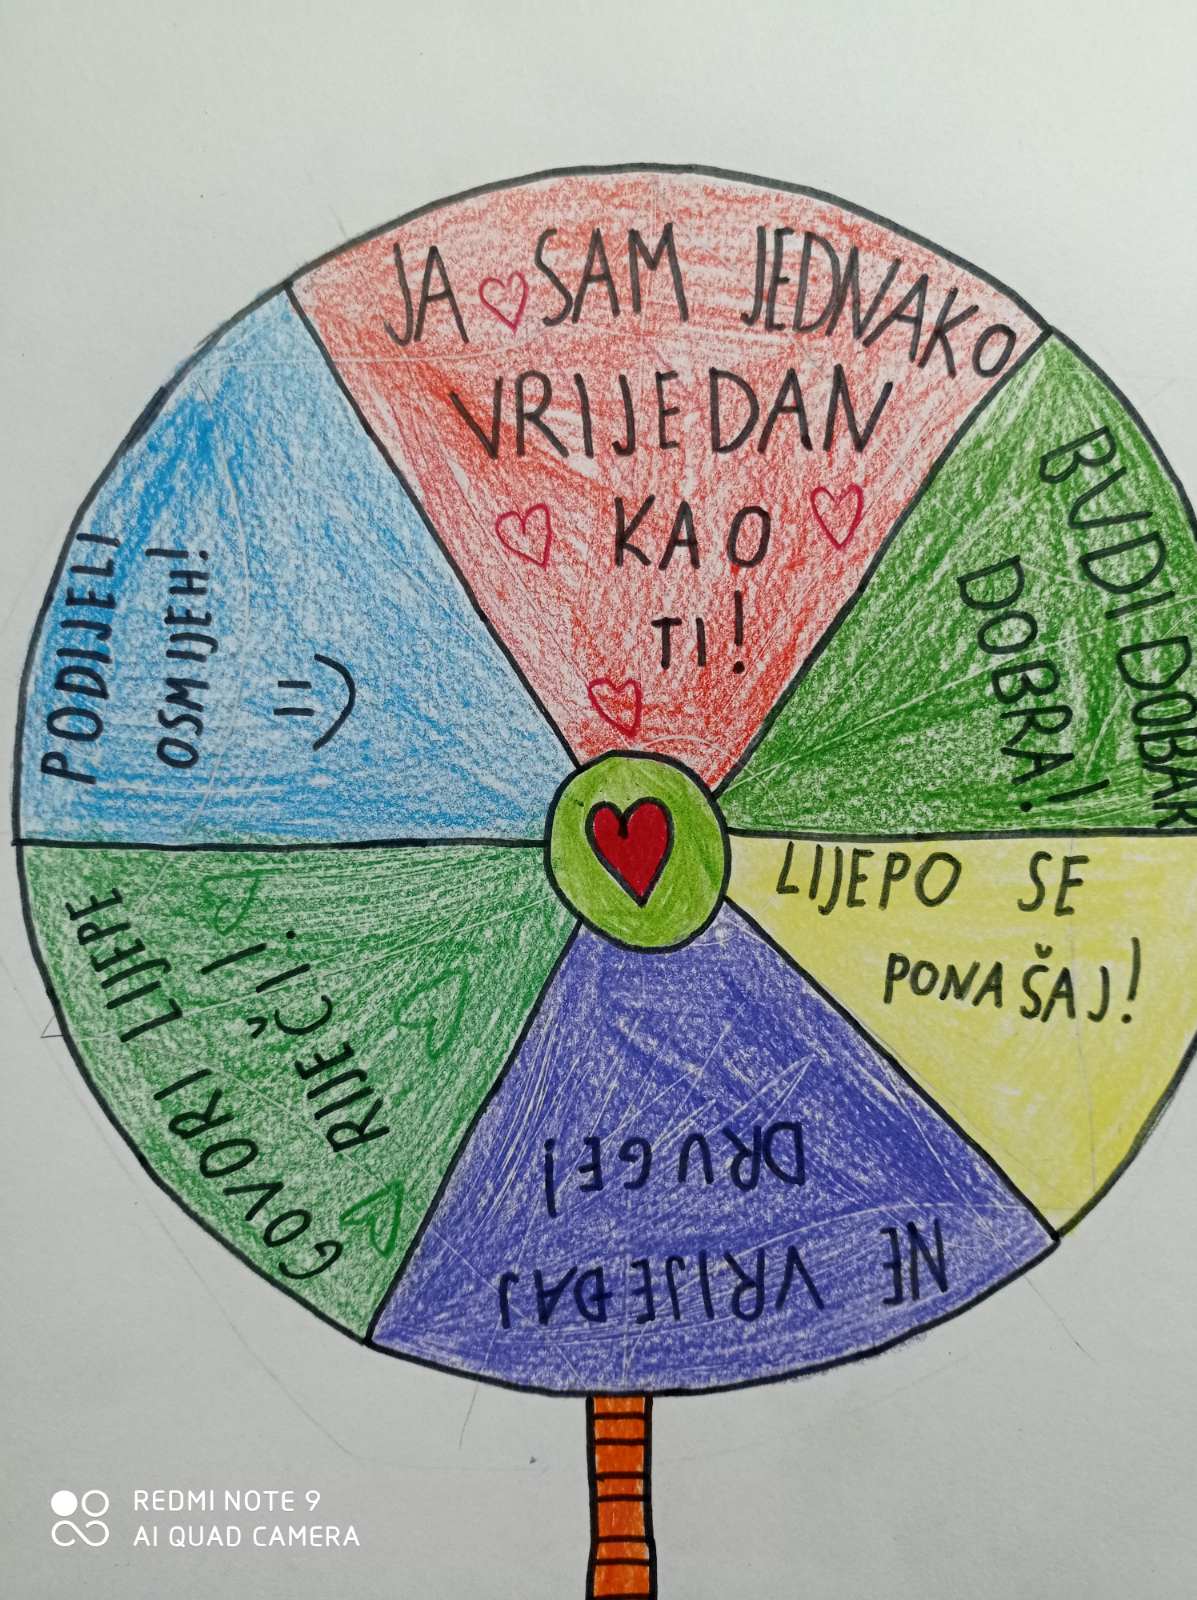 JA SAM JEDNAKO
VRIJEDAN
KAO
TI!
BUDI DOBAR
DOBRA!
LIJEPO SE
PONAŠAJ!
NE VRIJEĐAJ
DRUGE!
GOVORI LIJEPE
RIJEČI!
PODIJELI
OSMIJEH!
REDMI NOTE 9
AI QUAD CAMERA